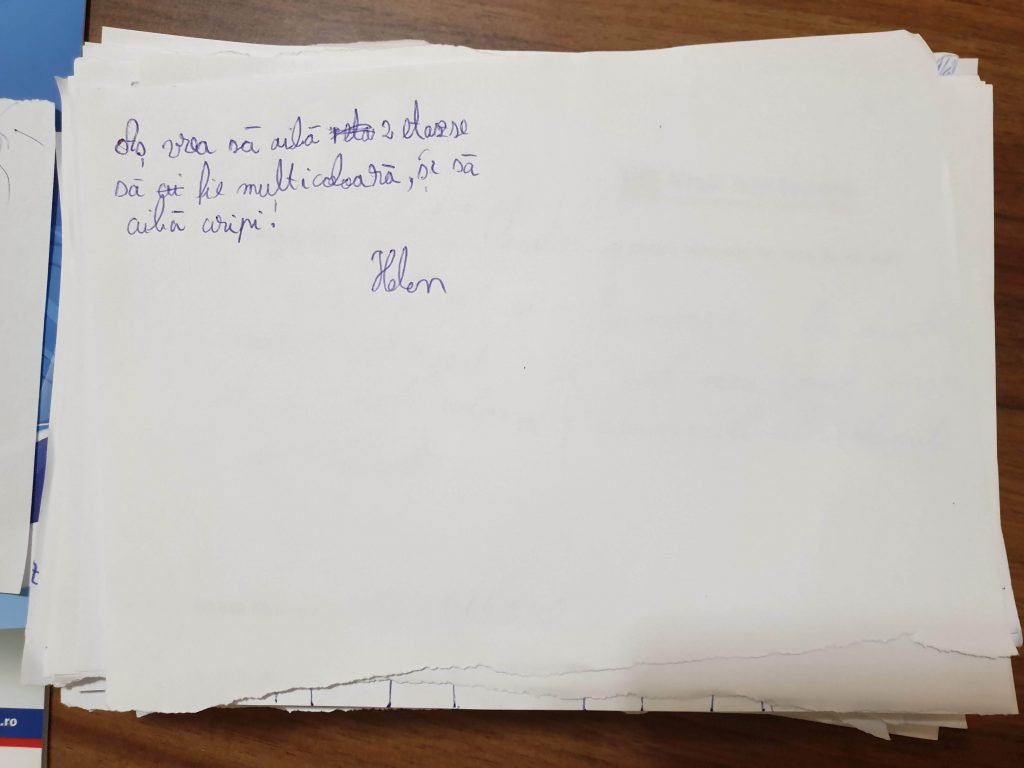 Aș vrea să aibă 2 clase
să fie multicoloară, și să
aibă aripi!
Helen
.ro